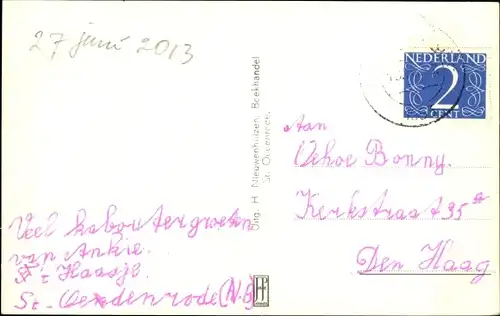 27 juni 2013
NEDERLAND
2
CENT
Uitg. H. Nieuwenhuizen, Boekhandel
St. Oedenrode.
Aan
Oehoe Bonny.
Kerkstraat 35a
Den Haag
Veel kaboutergroeten
van Ankie.
't Haasje.
St. Oedenrode (N.B)